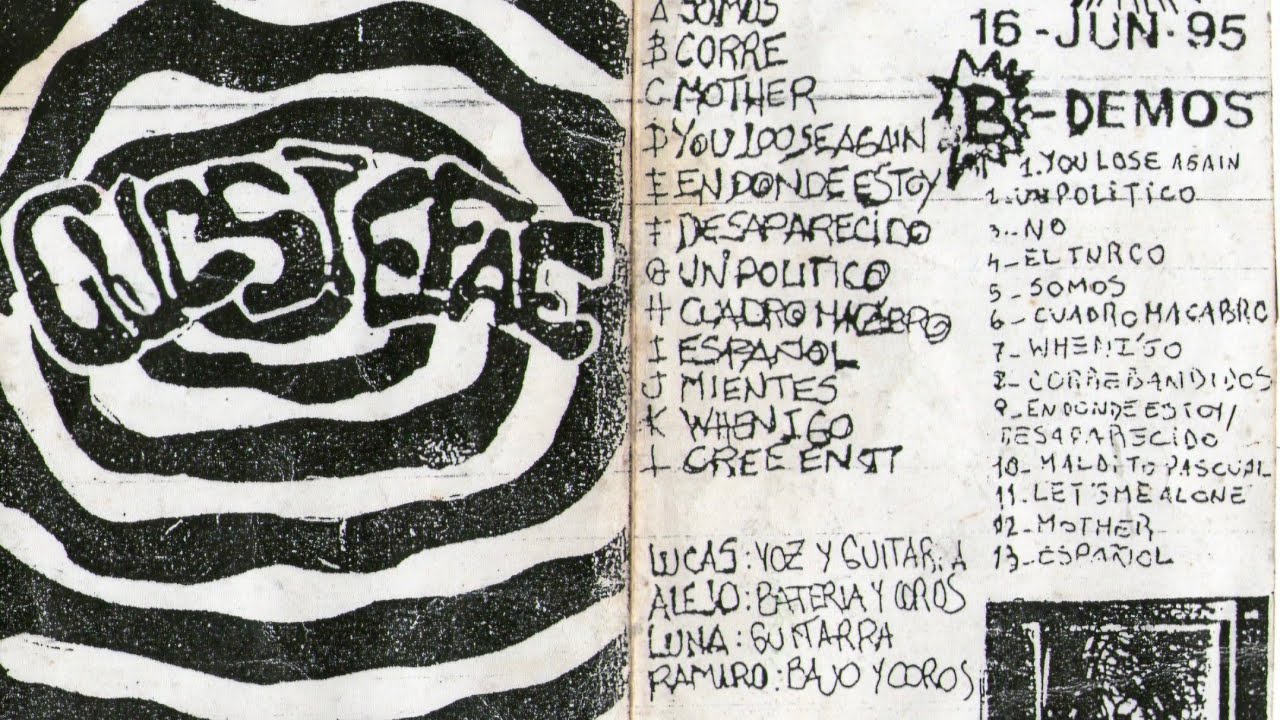 A SOMOS
B CORRE
C MOTHER
D YOU LOOSE AGAIN
E EN DONDE ESTOY
F DESAPARECIDO
G UN POLITICO
H CUADRO MACABRO
I ESPAÑOL
J MIENTES
K WHEN I GO
L CREÉ EN TI
LUCAS: VOZ Y GUITARRA
ALEJO: BATERIA Y COROS
LUNA: GUITARRA
RAMIRO: BAJO Y COROS
16-JUN-95
B-DEMOS
1. YOU LOSE AGAIN
2. UN POLÍTICO
3- NO
4- EL TURCO
5- SOMOS
6- CUADRO MACABRO
7- WHEN I'GO
8- CORRE BANDIDOS
9- EN DONDE ESTOY/
DESAPARECIDO
10- MALDITO PASCUAL
11- LET'S ME ALONE
12- MOTHER
13- ESPAÑOL